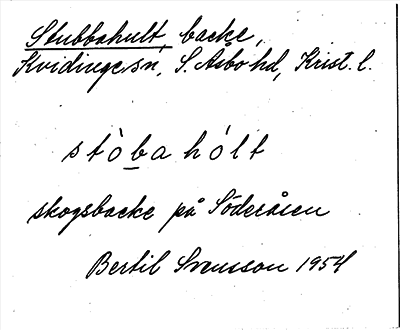 Stubbahult, backe,
Kvidinge sn, S. Åsbo hd, Krist. l.
stò̀ba hólt
skogsbacke på Söderåsen
Bertil Svensson 1954